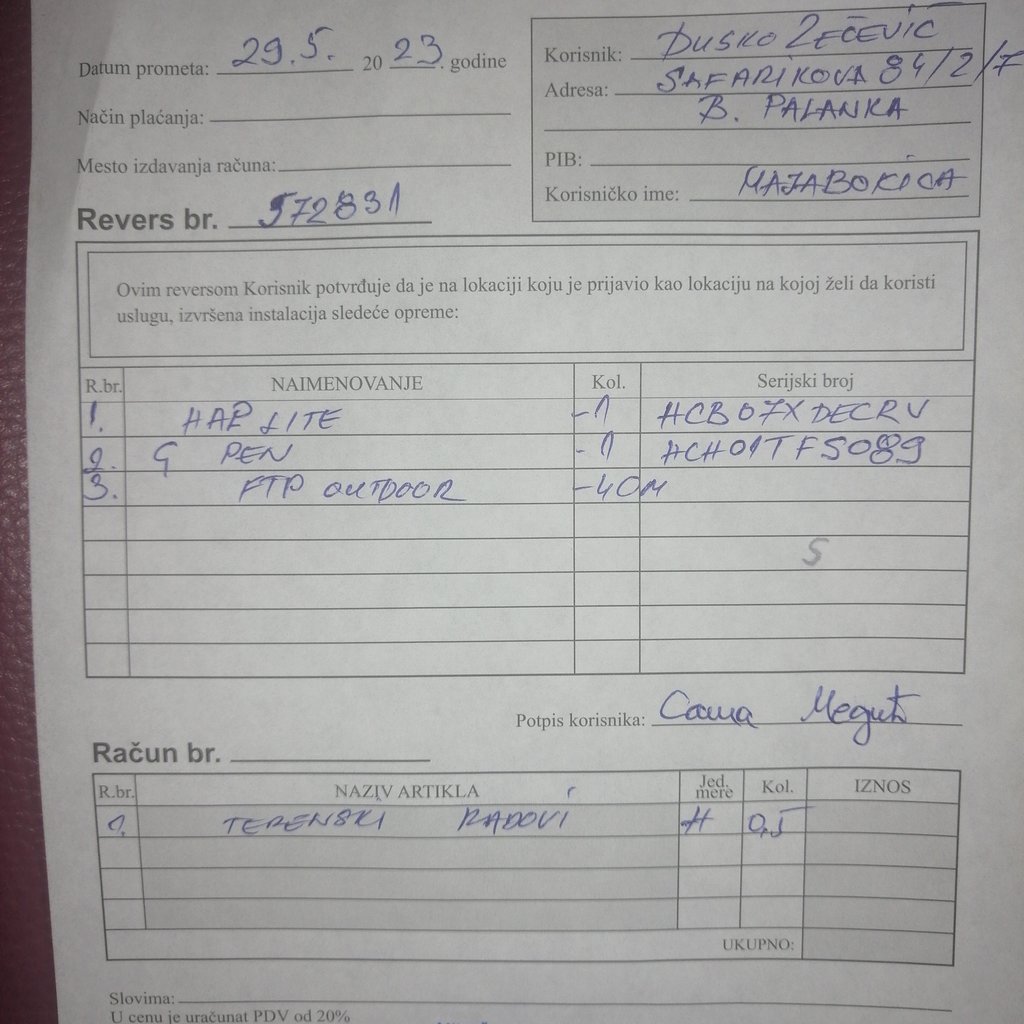 Datum prometa: 29.5. 20 23. godine
Način plaćanja:
Mesto izdavanja računa:
Revers br. 572831
Korisnik: DUSKO ZEČEVIĆ
Adresa: SAFARIKOVA 84/2/7
B. PALANKA
PIB:
Korisničko ime: MAJABOKICA
Ovim reversom Korisnik potvrđuje da je na lokaciji koju je prijavio kao lokaciju na kojoj želi da koristi
uslugu, izvršena instalacija sledeće opreme:
R.br. NAIMENOVANJE Kol. Serijski broj
1. HAP LITE -1 HCB07XDECRV
2. G PEN -1 HCH01TFS089
3. FTP OUTDOOR -40M
S
Potpis korisnika: Саша
Račun br.
R.br. NAZIV ARTIKLA Jed. mere Kol. IZNOS
1. TERENSKI RADOVI H 0,5
UKUPNO:
Slovima:
U cenu je uračunat PDV od 20%